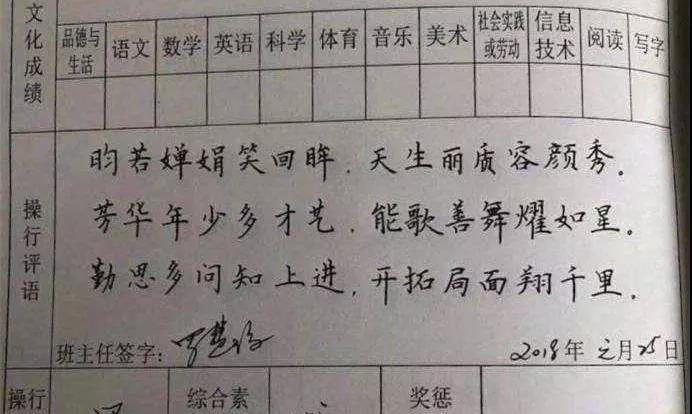 文化成绩
品德与生活 语文 数学 英语 科学 体育 音乐 美术 社会实践或劳动 信息技术 阅读 写字
操行评语
昀若婵娟笑回眸，天生丽质容颜秀。
芳华年少多才艺，能歌善舞耀如星。
勤思多问知上进，开拓局面翔千里。
班主任签字：
2018年元月25日
操行 综合素 奖惩